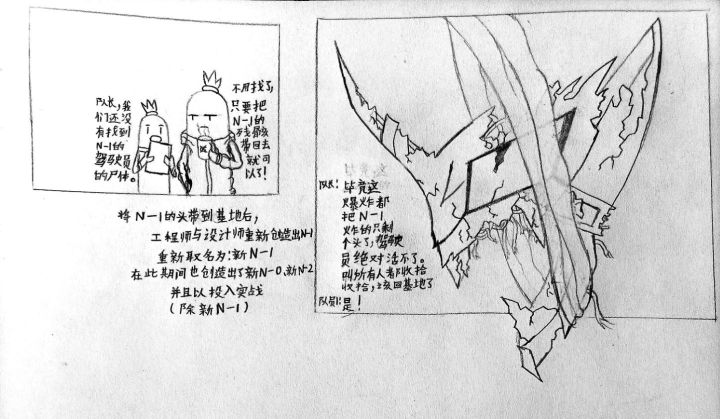 队长,我
们还没
有找到
N-1的
驾驶员
的尸体。
不用找了,
只要把
N-1的
残骸
带回去
就可
以了!
将N-1的头带到基地后,
工程师与设计师重新创造出N-1
重新取名为:新N-1
在此期间也创造出了新N-0、新N-2
并且以投入实战
(除新N-1)
队长:毕竟这
爆炸都
把N-1
炸的只剩
个头了,驾驶
员绝对活不了。
叫所有人都收拾
收拾,该回基地了
队员:是!